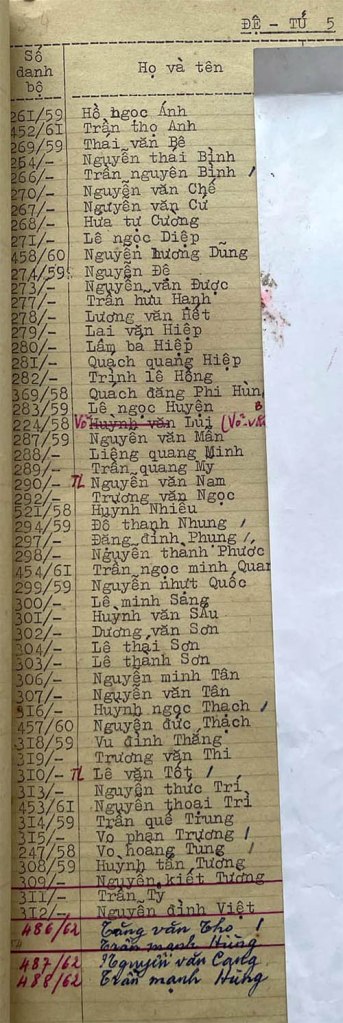 ĐỆ - TỨ 5
Số danh bộ Họ và tên
261/59 Hồ ngọc Ánh
452/61 Trần thọ Anh
269/59 Thái văn Bê
254/- Nguyễn thái Bình
266/- Trần nguyên Bình /
270/- Nguyễn văn Chế
267/- Nguyễn văn Cứ
268/- Hứa tự Cường
271/- Lê ngọc Diệp
458/60 Nguyễn hương Dũng
274/59 Nguyễn Đệ
273/- Nguyễn văn Được
277/- Trần hưu Hạnh
278/- Lương văn Hết
279/- Lai văn Hiệp
280/- Lâm bá Hiệp
281/- Quách quang Hiệp
282/- Trịnh lê Hồng
369/58 Quách đăng Phi Hùn
283/59 Lê ngọc Huyện
224/58 Võ Huỳnh văn Lụi (Võ-văn
287/59 Nguyễn văn Mân
288/- Liêng quang Minh
289/- Trần quang Mỹ
290/- TL Nguyễn văn Nam
292/- Trương văn Ngọc
521/58 Huỳnh Nhiêu
294/59 Đỗ thanh Nhung /
297/- Đặng đình Phung /
298/- Nguyễn thành Phước
454/61 Trần ngọc minh Quan
299/59 Nguyễn nhựt Quốc
300/- Lê minh Sáng
301/- Huỳnh văn Sấu
302/- Dương văn Sơn
304/- Lê thái Sơn
303/- Lê thành Sơn
306/- Nguyễn minh Tân
307/- Nguyễn văn Tân
316/- Huỳnh ngọc Thạch /
457/60 Nguyễn đức Thạch
318/59 Vu đình Thắng
319/- Trương văn Thi
310/- TL Lê văn Tốt /
313/- Nguyễn thức Trí
453/61 Nguyễn thoại Trì
314/59 Trần quế Trung
315/- Vo phan Trương /
247/58 Vo hoang Tung /
308/59 Huỳnh tấn Tường
309/- Nguyễn kiết Tường
311/- Trần Ty
312/- Nguyễn đình Việt
486/62 Tăng văn Thọ /
Trần mạnh Hùng
487/62 Nguyễn văn Cang
488/62 Trần mạnh Hùng